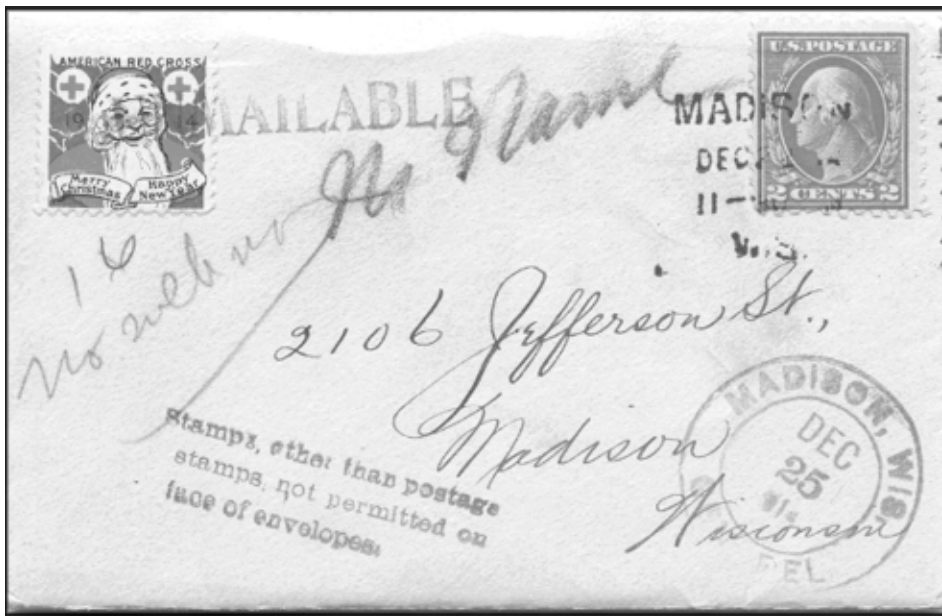 AMERICAN RED CROSS
19 14
Merry Christmas Happy New Year
MAILABLE
No Name
U.S. POSTAGE
2 CENTS 2
MADISON
DEC
11-
WIS.
16
No
2106 Jefferson St.,
Madison
Wisconsin
Stamps, other than postage
stamps, not permitted on
face of envelopes.
MADISON, WIS.
DEC
25
DEL